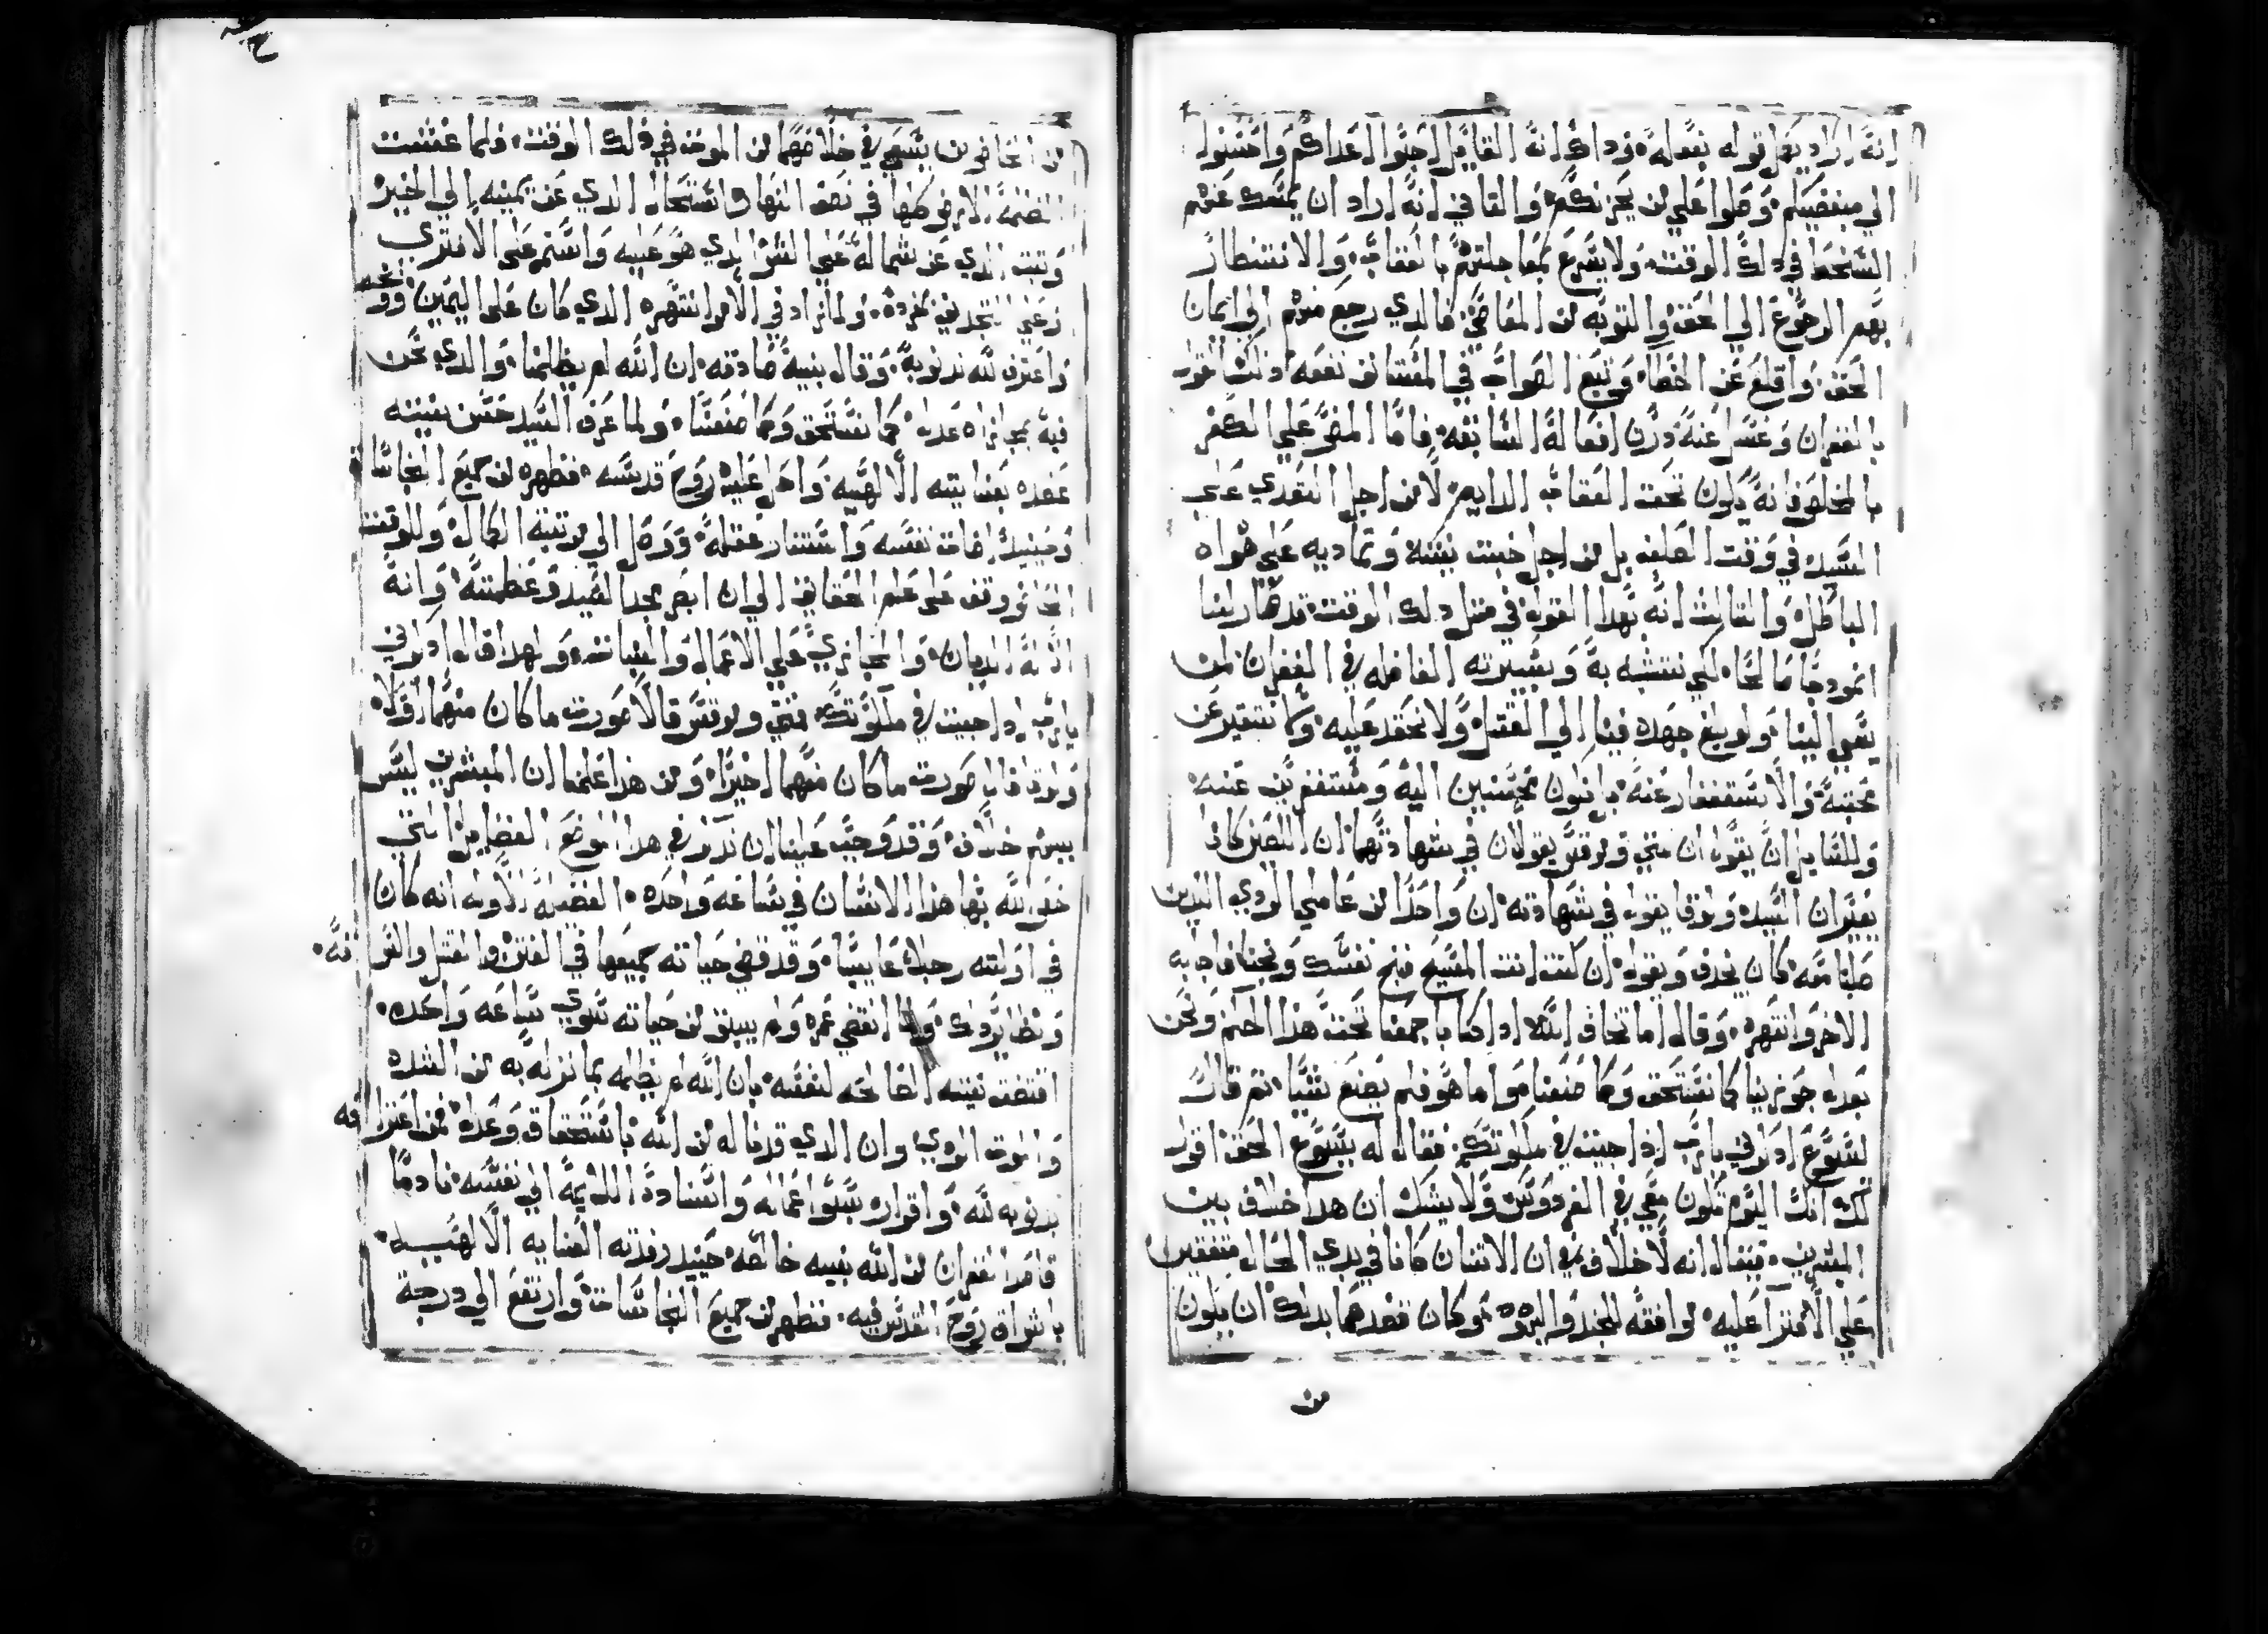 انه اراد يعمل قوله بفعله وداك انه القايل احبوا اعداكم واحسنوا
الي مبغضيكم وصلوا علي من يحزنكم والثاني انه اراد ان يمسك عنهم
السخط في دلك الوقت ولا يسرع بمعاجلتهم بالعقاب والانتظار
بهم الرجوع الي الحق والتوبه من المعاصي فالدي رجع منهم الي ايمان
الحق واقلع عن الخطا وتبع الصواب في المستانف نفعه ذلك القول
بالغفران وغسل عنه درن افعاله السابقه فاما المصر علي الكفر
بالمخلص فانه يكون تحت العقاب الدايم لا من اجل التعدي علي
السيد في وقت الصلب بل من اجل خبث نيته وتماديه علي هواه
الباطل والثالث انه بهدا القول في مثل دلك الوقت قد صار لنا
انمودجا صالحا لكي نتشبه به وبسيرته الفاضله في الغفران لمن
يسي الينا ولو بلغ جهده فينا الي القتل ولا نحقد عليه ولا نتغير عن
محبته والاستغفار عنه بل نكون محسنين اليه ومستغفرين عنه
وللقايل ان يقول ان متي ومرقس يقولان في شهادتهما ان اللصين كانا
يعيران السيد ولوقا يقول في شهادته ان واحدا من عاملي الردي الدين
صلبا معه كان يجدف ويقول ان كنت انت المسيح فنج نفسك ونجنا فاجابه
الاخر وانتهره وقال اما تخاف الله اد كنا باجمعنا تحت هذا الحكم ونحن
بعدل جوزينا كما نستحق وكما صنعنا واما هو فلم يصنع شيا ثم قال
ليسوع ادكرني يارب اذا جيت في ملكوتك فقال له يسوع الحق اقول
لك انك اليوم تكون معي في الفردوس ولا يشك ان هدا خلاف بين
المبشرين فيقال انه لا خلاف في ان الاتنان كانا في بدي الحال متفقين
علي الافترا عليه لموافقه الجند واليهود وكان قصدهما بدلك ان يكون
من
من الحاضرين يسعي في خلاصهما من الموت في ذلك الوقت ولما غشيت
الظلمه الارض كلها في نصف النهار استحال الدي عن يمينه الي الخير
وثبت الدي عن شماله علي الشر الدي هو عليه واستمر علي الافتري
ولما زاد في الامر انتهره الدي كان علي اليمين ووبخه
واعترف لله بدنوبه وقال بنية صادقه ان الله لم يظلمنا والدي نحن
فيه بمجازاه عدل كما نستحق وكما صنعنا ولما عرف السيد حسن نيته
عضده بعنايته الالهيه واحل عليه روح قدسه فطهره من جميع النجاسات
وحينيد اضات نفسه واستنار عقله ووصل الي مرتبة الكمال وللوقت
الحاضر وقف علي علم الحقايق الي ان ابصر مجد السيد وعظمته وانه
الاله الديان والمجازي علي الاعمال والنيات ولهدا قال ادكرني
يارب اذا جيت في ملكوتك فمتي ومرقس قالا صورت ما كان منهما اولا
ولوقا قال صورت ما كان منهما اخيرا ومن هذا علمنا ان المبشرين ليس
بينهم خلاف وقد وجب علينا ان ندكر في هدا الموضع الفضايل التي
خص الله بها هذا الانسان في ساعه واحده الفضيله الاوله انه كان
في اوليته رجلا عايبا وقد قضي حياته جميعها في الفتن والقتل والسرقه
ونظاير دلك ولما انقضي عمره ولم يبيق من حياته سوي ساعه واحده
اقتضت نيته الصالحه لنفسه بان الله لم يظلمه بما نزل به من الشده
والموت الردي وان الدي قد ناله من الله باستحقاق وعدل فمن اعترافه
بدنوبه لله واقراره بسوا اعماله واسناده اللايمه الي نفسه نادما
قاصدا الغفران من الله بنيه خالصه حينيد رفدته العنايه الالهيه
باشراق روح القدس فيه فتطهر من جميع النجاسات وارتفع الي درجة